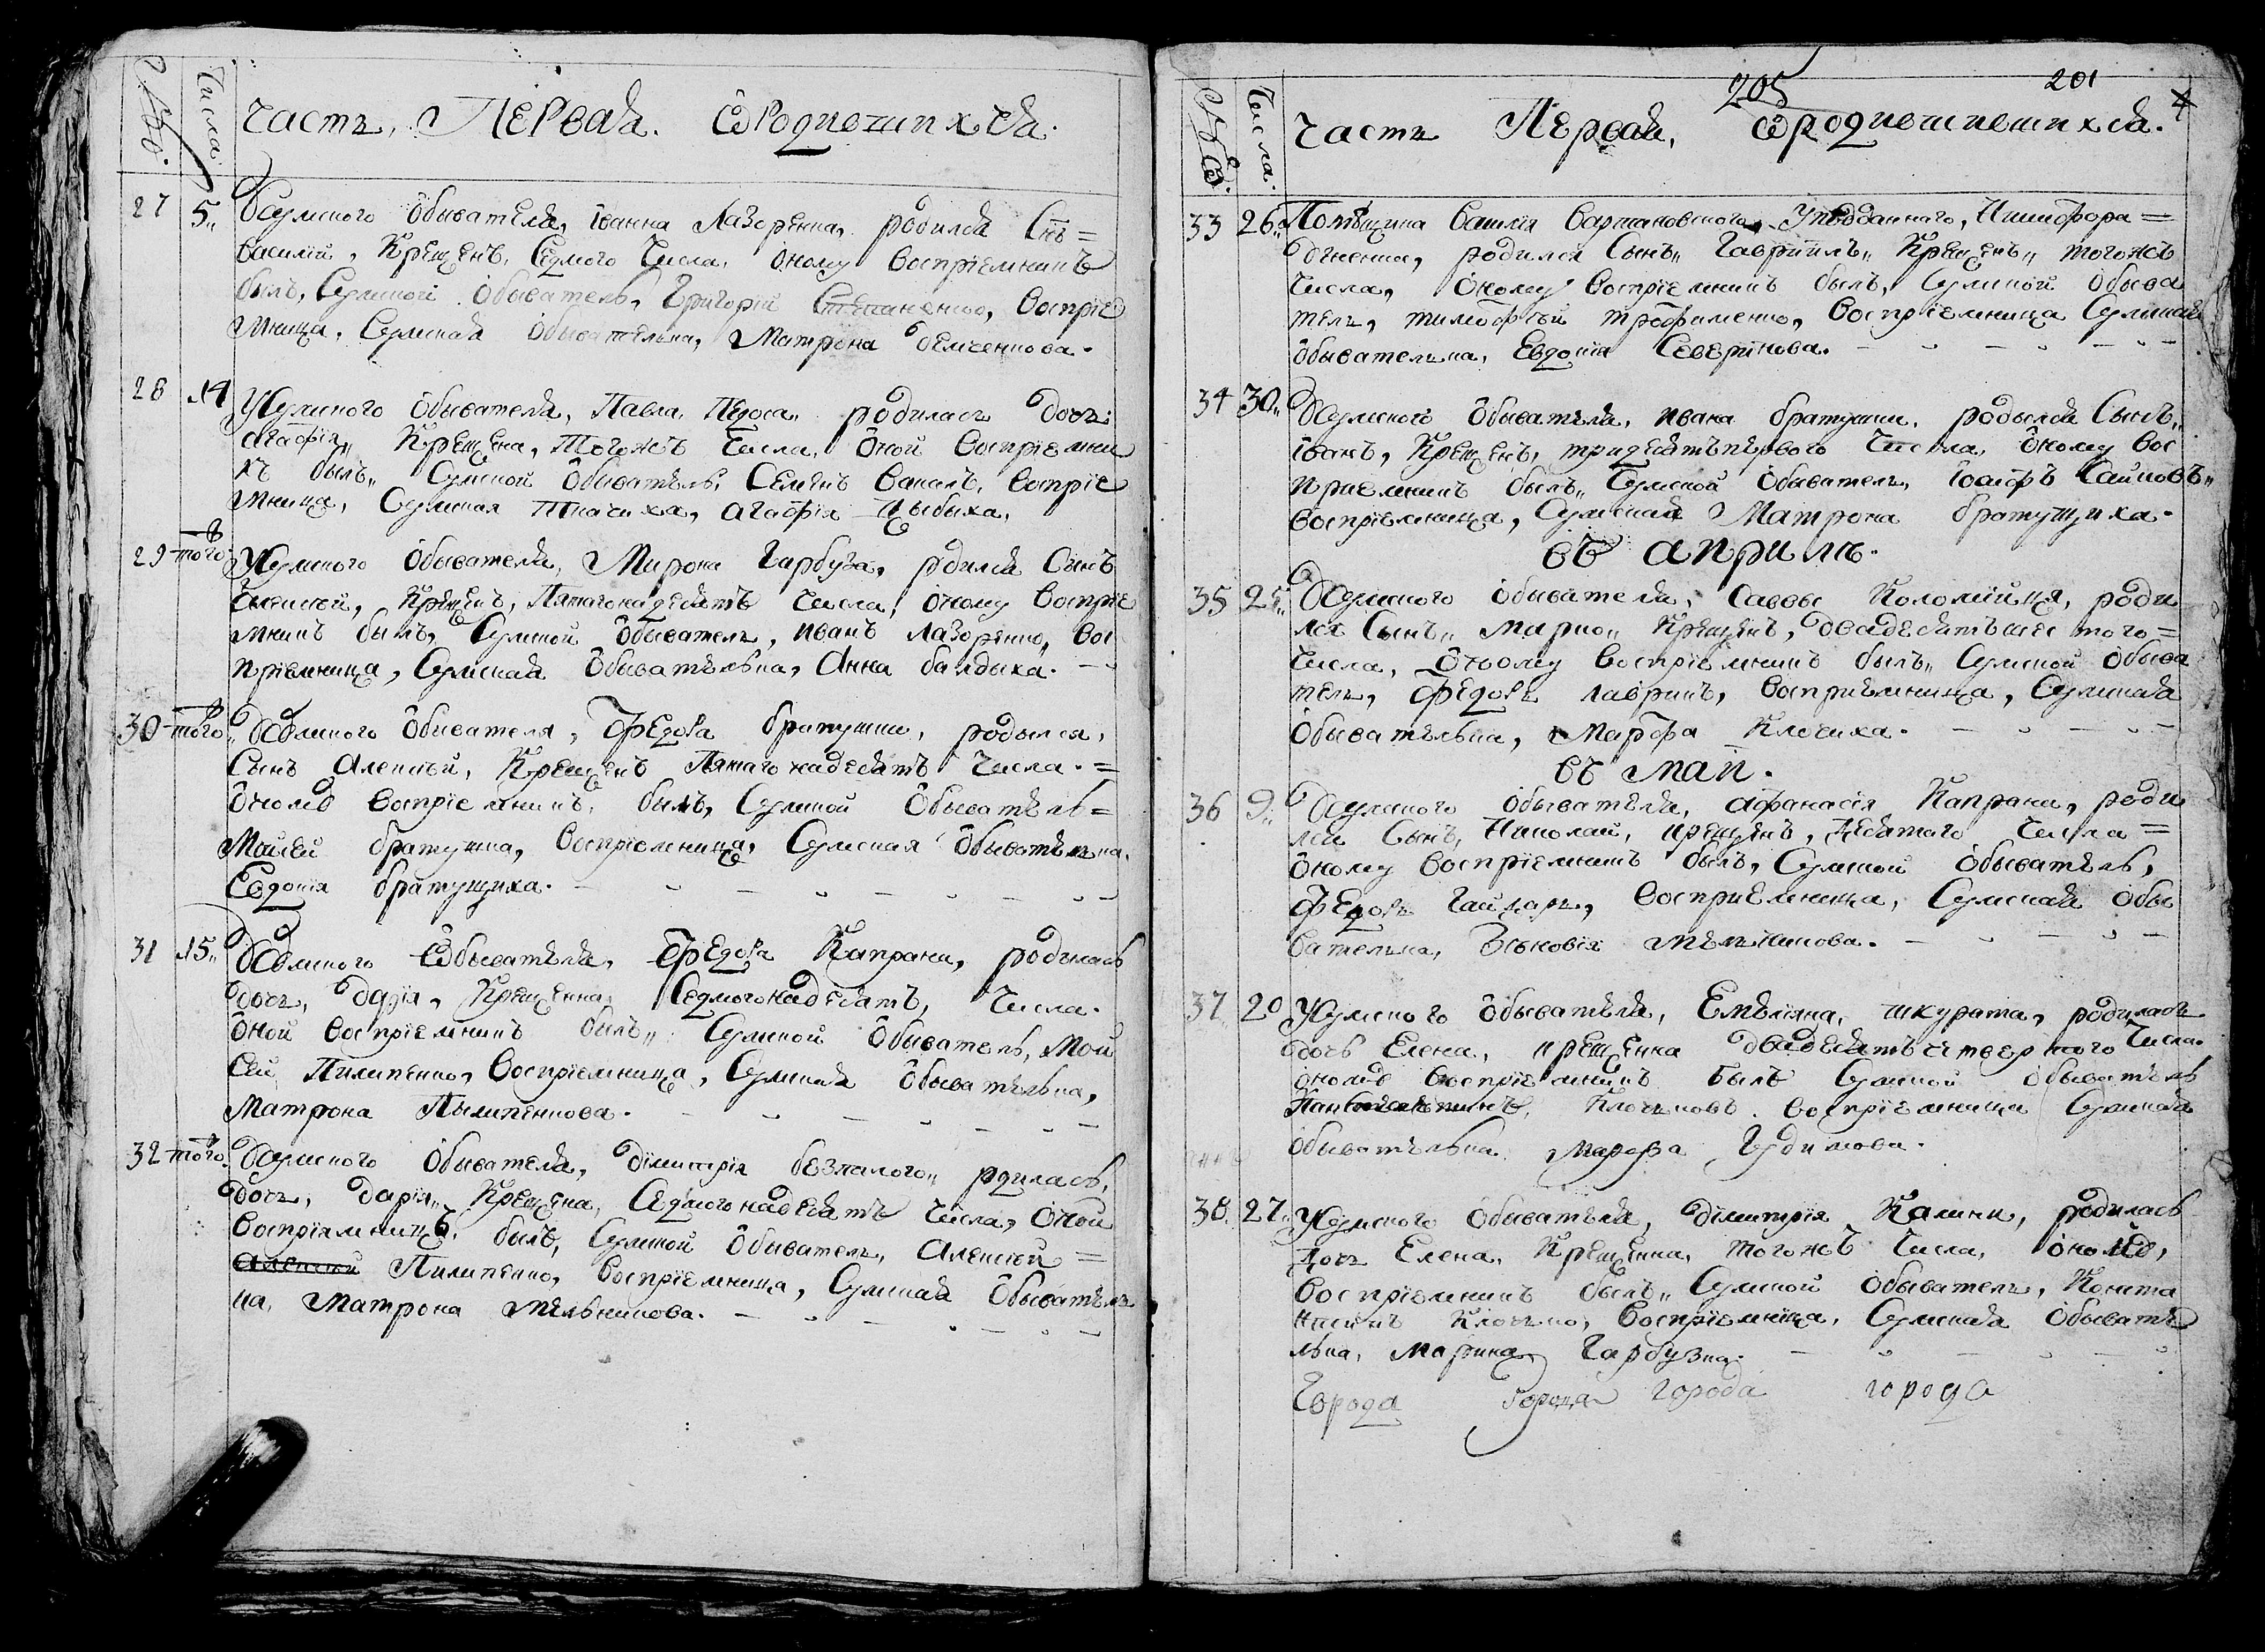 Числа.
часть, Первая. ѡродившихся.
27 5. Усумского обывателя, їванна Лазоренка, родился Снъ =
василій, Крещенъ, Седмого Числа, оному воспріемникъ
былъ, Сумской обыватель, Григорій Степаненко, воспріе
мница, Сумская обывателка, Матрона демченкова.
28 14 Усумского обывателя, Павла родилась дочь
агафія, Крещена, Тогожъ Числа, оной воспріемни
къ былъ, Сумской обыватель, Семенъ воспріе
мница, Сумская Ткачиха, агафія Цыбыха,
29 того Усумского обывателя, Мирона Гарбуза, рдился Сынъ
Алексѣй, Крещенъ, Пятагонадесять Числа, оному воспріе
мникъ былъ, Сумской обыватель, иванъ лазоренко, вос
пріемница, Сумская обывателька, Анна балдыха.
30 того Усумского обывателя, Федора братушки, родылся,
Сынъ Алексѣй, Крещенъ Пятагонадесять Числа. =
ономꙋ воспріемникъ, былъ, Сумской обыватель =
Мойсей братушка, воспріемница, Сумская обывателка,
Евдокія братущиха.
31 15. Усумского ѡбывателя, Федора Капрана, родылась
дочь, Крещенна, Седмогонадесять, Числа.
оной воспріемникъ былъ, Сумской обыватель, Мой
сей Пилипенко, воспріемница, Сумская обывателька,
Матрона Пылипенкова.
32 того Усумского обывателя, димитрія безпалого, рдилась,
дочь, дарія, Крещена, Седмогонадесять Числа, оной
воспріямникъ былъ, Сумской обыватель, Алексѣй =
Алексѣй Пилипенко, воспріемница, Сумская обыватель
ка, Матрона Мельникова.
205 201
Числа.
часть Первая, ѡродившихся.
33 26. Помѣщика Василія Карпановского, Уподданного, Никифора =
родился Сынъ, Гавріилъ, Крещенъ, тогожъ
Числа, оному воспріемникъ былъ, Сумской обыва
тель, тимофѣй трофименко, воспріемница Сумская
обывателка, Евдокія Северинова.
34 30. Усумского обывателя, ивана братушки, родылся Сынъ,
їванъ, Крещенъ, тридесятьпервого Числа, оному вос
приемникъ былъ, Сумской обыватель, їосифъ
воспріемница, Сумская Матрона братущиха.
въ априлъ.
35 25. Усумского обывателя, Саввы Коломійця, роди
лся Сынъ, Марко, Крещенъ, двадесятьшестого =
Числа, оному воспріемникъ былъ, Сумской обыва
тель, Федоръ лавринъ, восприемница, Сумская
обывателька, Марфа Клочиха.
въ маи.
36 9. Усумского обывателя, Афанасія Капрана, роди
лся Сынъ, Николай, крещенъ, девятого числа =
оному воспріемникъ былъ, Сумской обыватель,
Федоръ Гайдарь, восприемница, Сумская обы
вателка, Зѣновія мельникова.
37 20 Усумского обывателя, Емелїяна, шкурата, родилась
дочь Елена, крещенна двадесятьчетвертого Числа.
ономꙋ воспріемникъ былъ Сумской обыватель
Клочковъ. воспріемница Сумская
обывателька, марфа Гудимова.
38. 27. Усумского обывателя, димитрія Калини, родилась
дочь Елена, Крещенна, тогожъ Числа, ономꙋ,
воспріемникъ былъ, Сумской обыватель, Конста
нтинъ Клочко, воспріемница, Сумская обывате
лька, Марина, Гарбузна.
Города города города города